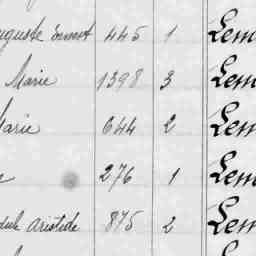 uguste Ernest 445 1 Lem
Marie 1398 3 Lem
Marie 644 2 Lem
e 276 1 Lem
dule Aristide 875 2 Lem